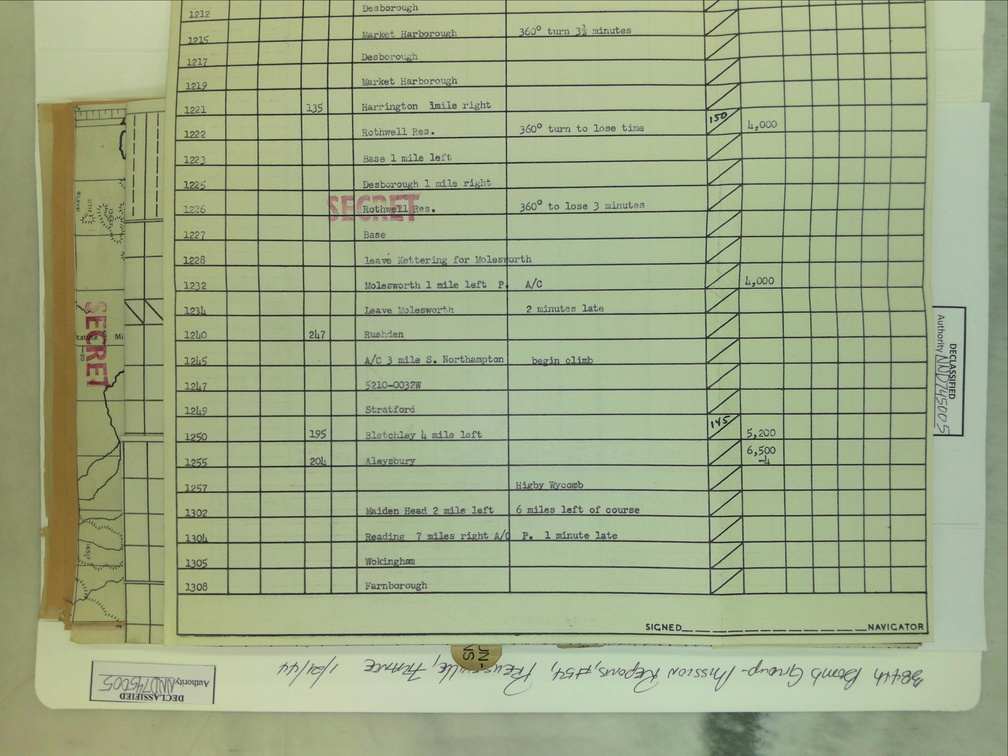 1212 Desborough
1215 Market Harborough 360° turn 3½ minutes
1217 Desborough
1219 Market Harborough
1221 135 Harrington 1mile right
1222 Rothwell Res. 360° turn to lose time 150 4,000
1223 Base 1 mile left
1225 Desborough 1 mile right
SECRET
1226 Rothwell Res. 360° to lose 3 minutes
1227 Base
1228 leave Kettering for Molesworth
1232 Molesworth 1 mile left P. A/C 4,000
1234 Leave Molesworth 2 minutes late
1240 247 Rushden
1245 A/C 3 mile S. Northampton begin climb
1247 5210-0032W
1249 Stratford
1250 195 Bletchley 4 mile left 145 5,200
1255 204 Aleysbury 6,500
-4
1257 Higby Wycomb
1302 Maiden Head 2 mile left 6 miles left of course
1304 Reading 7 miles right A/C P. 1 minute late
1305 Wokingham
1308 Farnborough
SIGNED NAVIGATOR
SECRET
DECLASSIFIED
Authority NND745005
384th Bomb Group - Mission Reports, #54, France 1/21/44
DECLASSIFIED
Authority NND745005